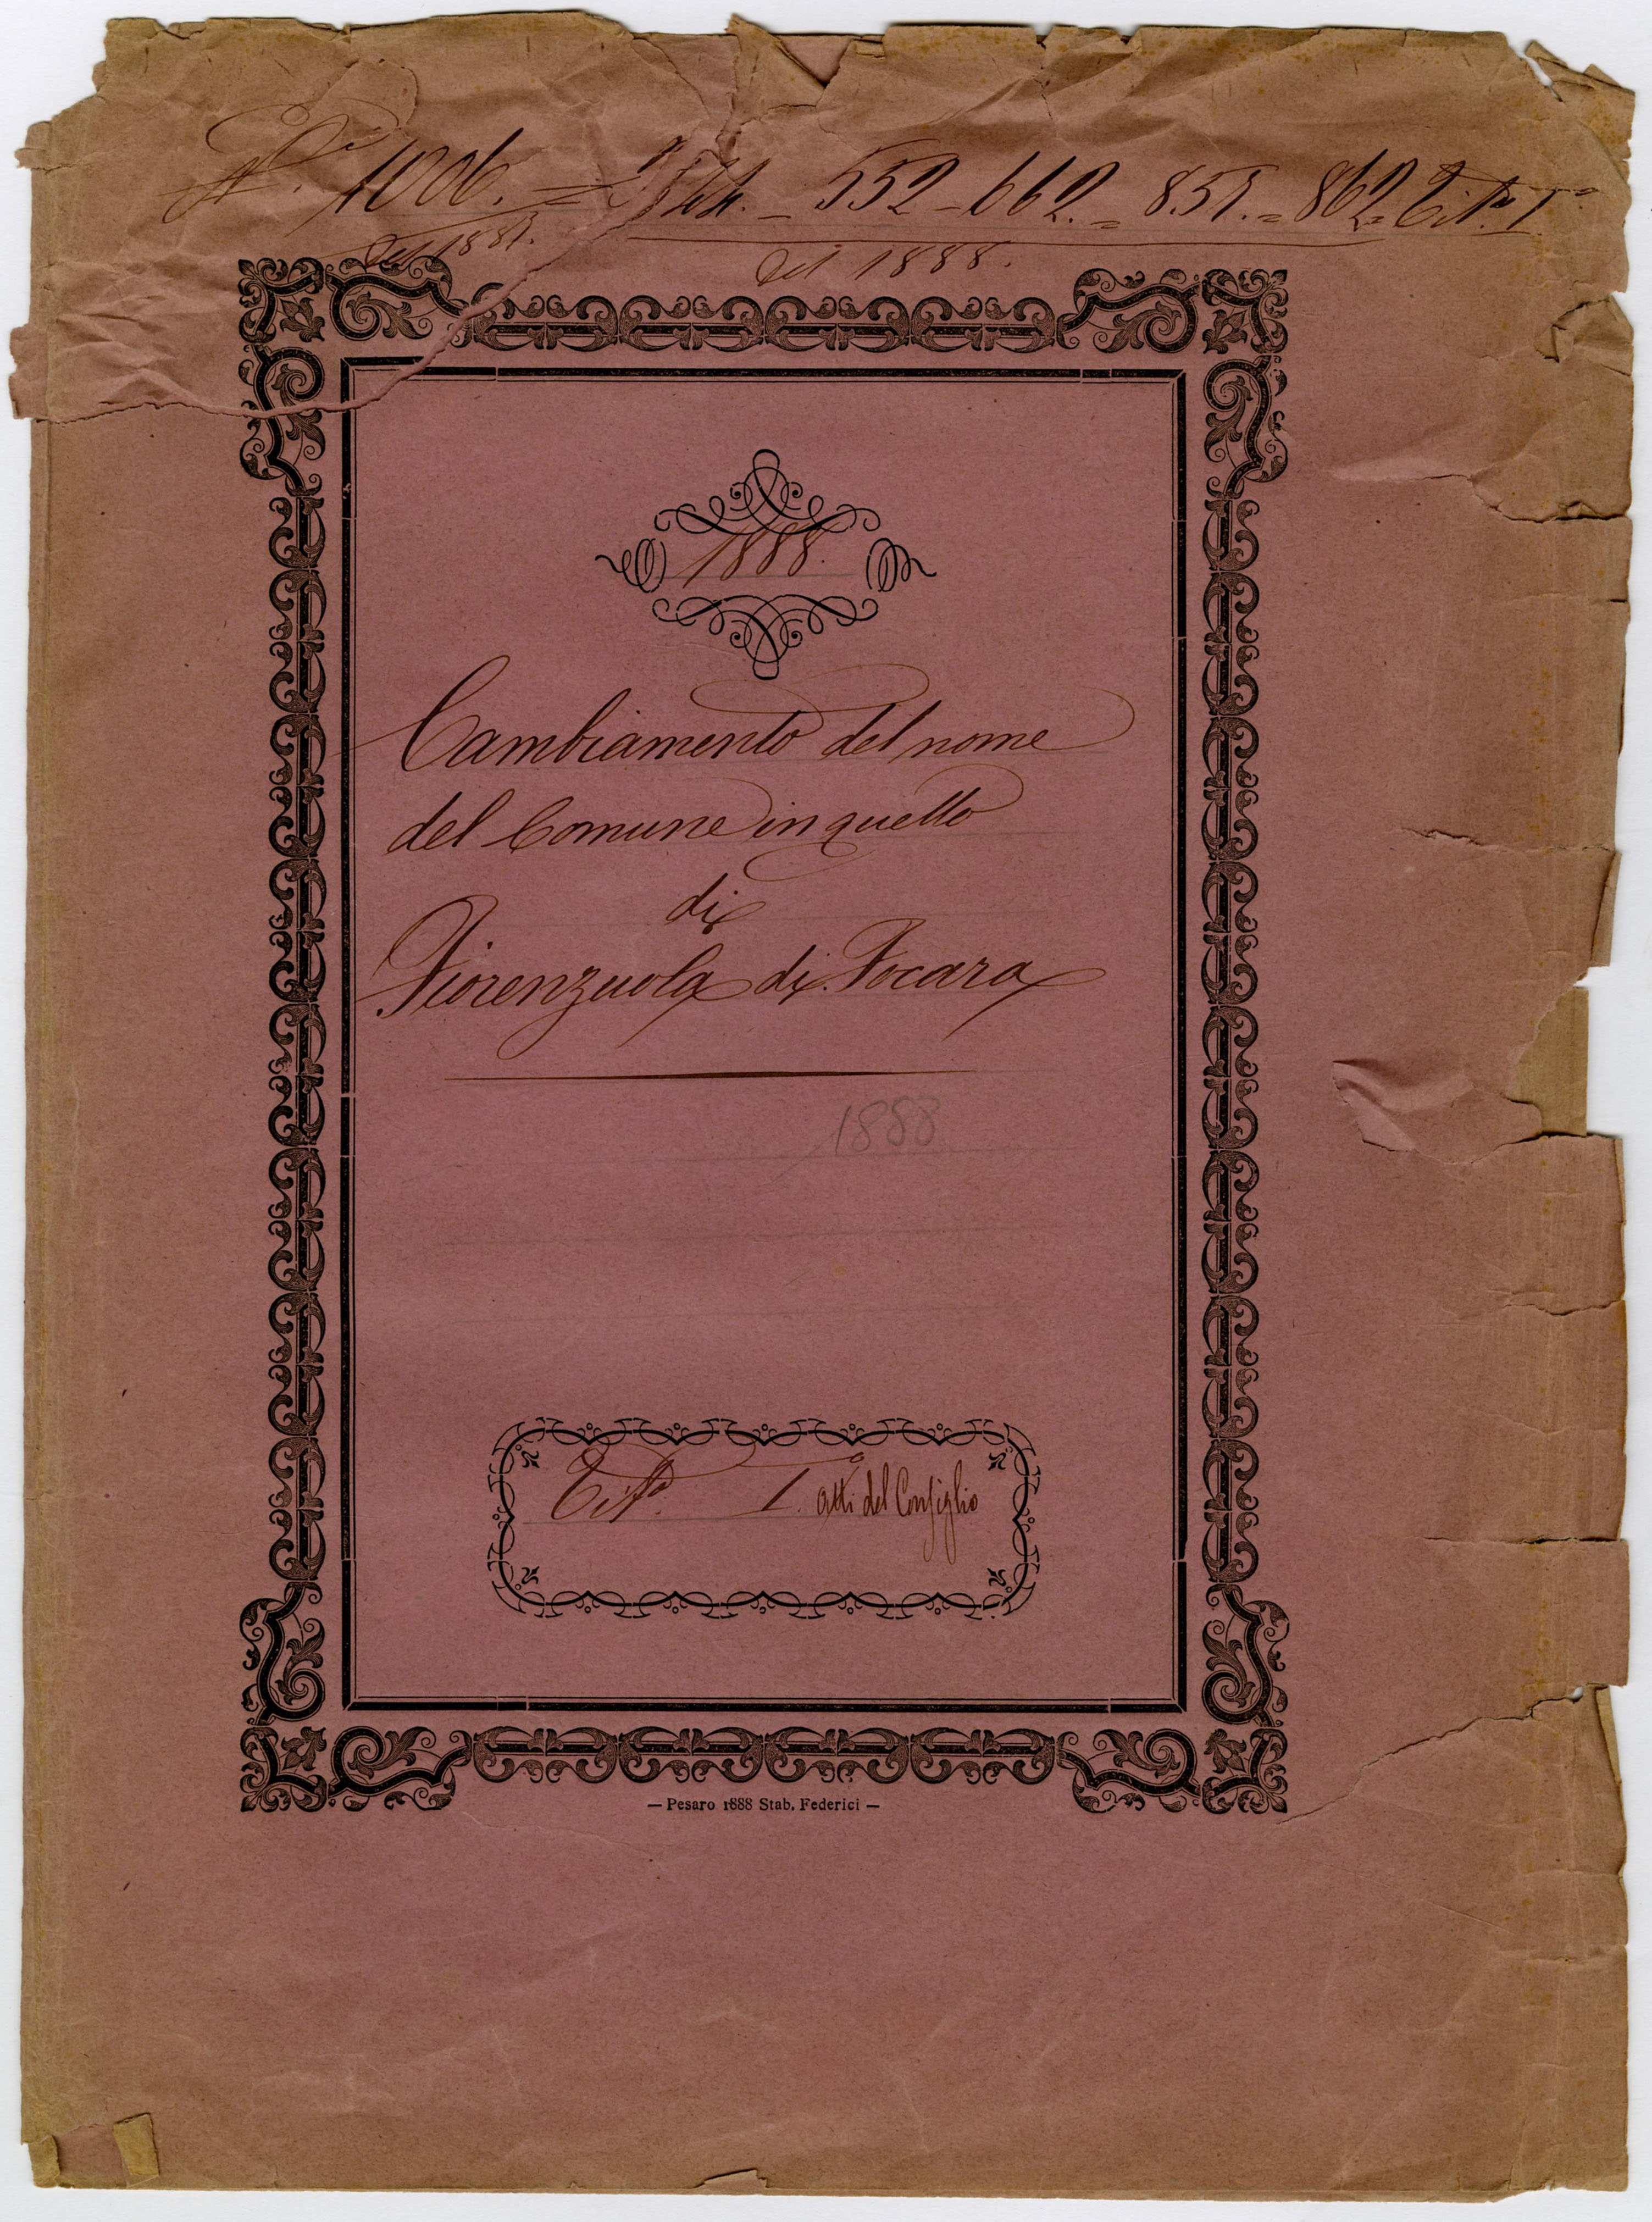 N.° 1006. = 552 - 662. = 851. = 862 = Tit.° I°
del 1887. del 1888.
1888.
Cambiamento del nome
del Comune in quello
di
Fiorenzuola di Focara
1888
Tit.° I.° Atti del Consiglio
— Pesaro 1888 Stab. Federici —